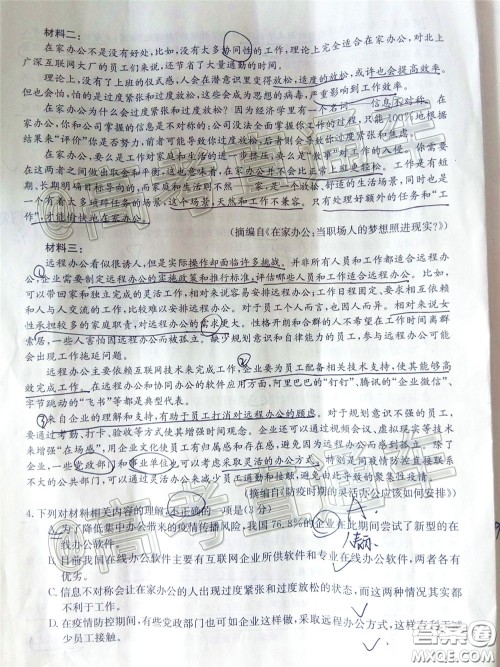 材料二:
在家办公不是没有好处,比如,没有太多协同性的工作,理论上完全适合在家办公,对北上
广深互联网大厂的员工们来说,还节省了大量通勤的时间。
理论上,没有了上班的仪式感,人会在潜意识里变得放松,适度的放松,或许也会提高效率。
但也会怕,怕的是过度紧张和过度放松,这些会成为思想的病毒,严重影响到工作效率。
在家办公为什么会过度紧张和过度放松?因为经济学里有一个名词——信息不对称。在
家办公,你和公司掌握的信息是不对称的;公司没法全面掌握你有没有工作,只能100%根据
结果来“评价”你是否努力,前者可能变成过度放松,后者就会变成过度紧张和过度焦虑。
在家办公,要么是工作对家庭和生活的进一步挤压,要么是“故事”对工作的入侵。你需要
在这两者之间做出妥协和平衡,这也就意味着,在家办公并不会比正常上班更轻松。工作是有短
期、长期明确目标导向的,而家庭和生活则不然——家,是一个放松、舒适的生活场景,同时也是
一个有着太多琐碎任务的场景,这个场景,天然和工作不兼容。只有处理好额外的任务和“工
作”,才能愉快地在家办公。
(摘编自《在家办公,当职场人的梦想照进现实?》)
材料三:
远程办公看似很诱人,但是实际操作却面临许多挑战。并非所有人员和工作都适合远程办
公,企业需要制定远程办公的实施政策和推行标准,评估哪些人员和工作适合远程办公。比如,
可以带回家和独立完成的灵活工作,相对来说容易安排远程办公,项目管理、日常行政等和人打
交道的工作,比较难以安排远程办公。对于员工个人而言,也因人而异。相对来说女
性承担较多的家庭职责,对远程办公的需求更大。性格开朗和合群的人不希望在工作时间离群
索居,一些人害怕因远程办公而被孤立。缺乏员工成熟的自我意识和自律能力的员工,参与远程办公可能
会出现工作拖延问题。
远程办公主要依赖互联网技术来完成工作,企业要为员工配备相关技术支持,使其能够高
效完成工作。在远程办公和协同办公的软件应用方面,阿里巴巴的“钉钉”、腾讯的“企业微信”、
字节跳动的“飞书”等都是典型代表。
来自企业的理解和支持,有助于员工打消对远程办公的顾虑。对于规划意识不强的员工,
要通过考勤、打卡、验收等方式使其增强时间观念。企业可以通过视频会议、虚拟现实等技术
来增强“在场感”,用企业文化使员工有归属感和存在感,避免因为远程办公而使员工感到被孤
立。一些党政部门和事业单位也可以考虑采取灵活的办公方式,避免因为疫情防控直接关系
不大的公共部门,可以通过灵活办公来减少接触,避免疫情扩散,使疫情得到有效遏制。
(摘编自《防疫时期的灵活办公应该如何安排》)
4.下列对材料相关内容的理解,不正确的一项是(3分)
A.为了降低集中办公带来的疫情传播风险,我国76.8%的企业在此期间尝试了新型的在
线办公软件。
B.目前我国在线办公软件主要有互联网企业所供软件和专业在线办公软件,两者各有
优劣。
C.信息不对称会让在家办公的人出现过度紧张和过度放松的状态,而这两种情况其实都
不利于工作。
D.在疫情防控期间,有些党政部门也可如企业这样做,采取远程办公方式,这样有利于减
少员工接触。
答案圈
MXQE.COM